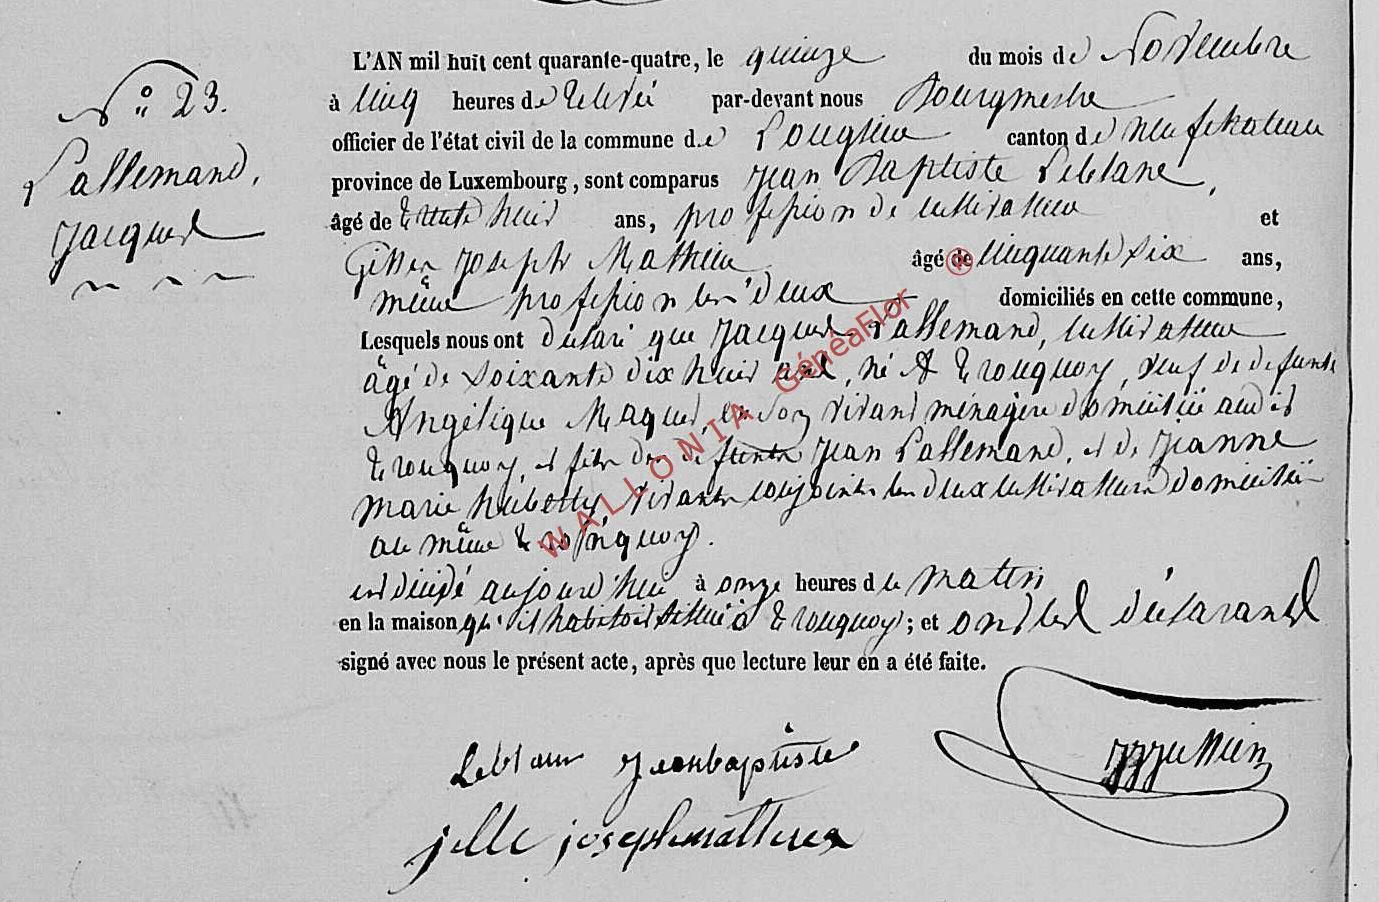 N° 23.
Lallemand,
Jacques
L'AN mil huit cent quarante-quatre, le quinze du mois de Novembre
à cinq heures de relevée par-devant nous Bourgmestre
officier de l'état civil de la commune de Longlier canton de Neufchateau
province de Luxembourg, sont comparus Jean Baptiste Leblanc,
âgé de trente huit ans, profession de cultivateur et
Joseph Mathieu âgé de cinquante six ans,
même profession les deux domiciliés en cette commune,
Lesquels nous ont déclaré que Jacques Lallemand, cultivateur
âgé de soixante dix huit ans, né à Tronquoy, veuf de defunte
Angélique Maquet, en son vivant ménagère domiciliée audit
Tronquoy, et fils des defunts Jean Lallemand, et de Jeanne
Marie vivants conjoints les deux cultivateurs domiciliés
au même Tronquoy.
est décédé aujourd'hui à onze heures du matin
en la maison qu'il habitoit située à Tronquoy; et ont les déclarants
signé avec nous le présent acte, après que lecture leur en a été faite.
Leblanc Jeanbaptiste
joseph mathieu
WALLONIA GénéaFlor
®